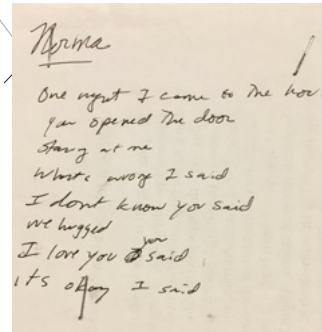 Norma
One night I came to the hou
you opened the door
staring at me
What's wrong I said
I dont know you said
we hugged
I love you you said
its okay I said